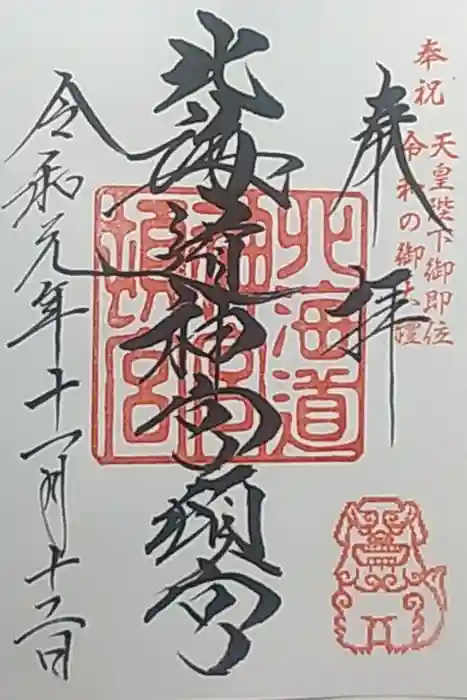 奉祝 天皇陛下御即位
令和の御大禮
奉拝
北海道神宮頓宮
北海道神宮頓宮
令和元年十一月十二日